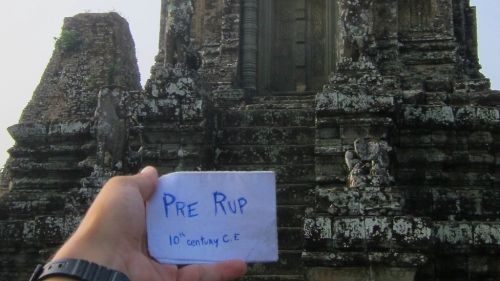 PRE RUP
10th CENTURY C.E